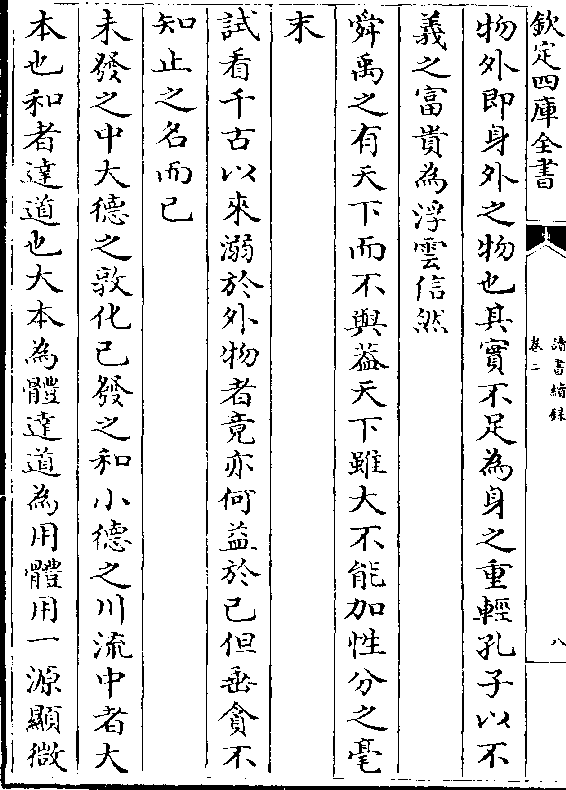 欽定四庫全書
讀書續錄
卷二
八
物外即身外之物也其實不足為身之重輕孔子以不
義之富貴為浮雲信然
舜禹之有天下而不與葢天下雖大不能加性分之毫
末
試看千古以來溺於外物者竟亦何益於已但垂貪不
知止之名而已
未發之中大德之敦化已發之和小德之川流中者大
本也和者達道也大本為體達道為用體用一源顯微